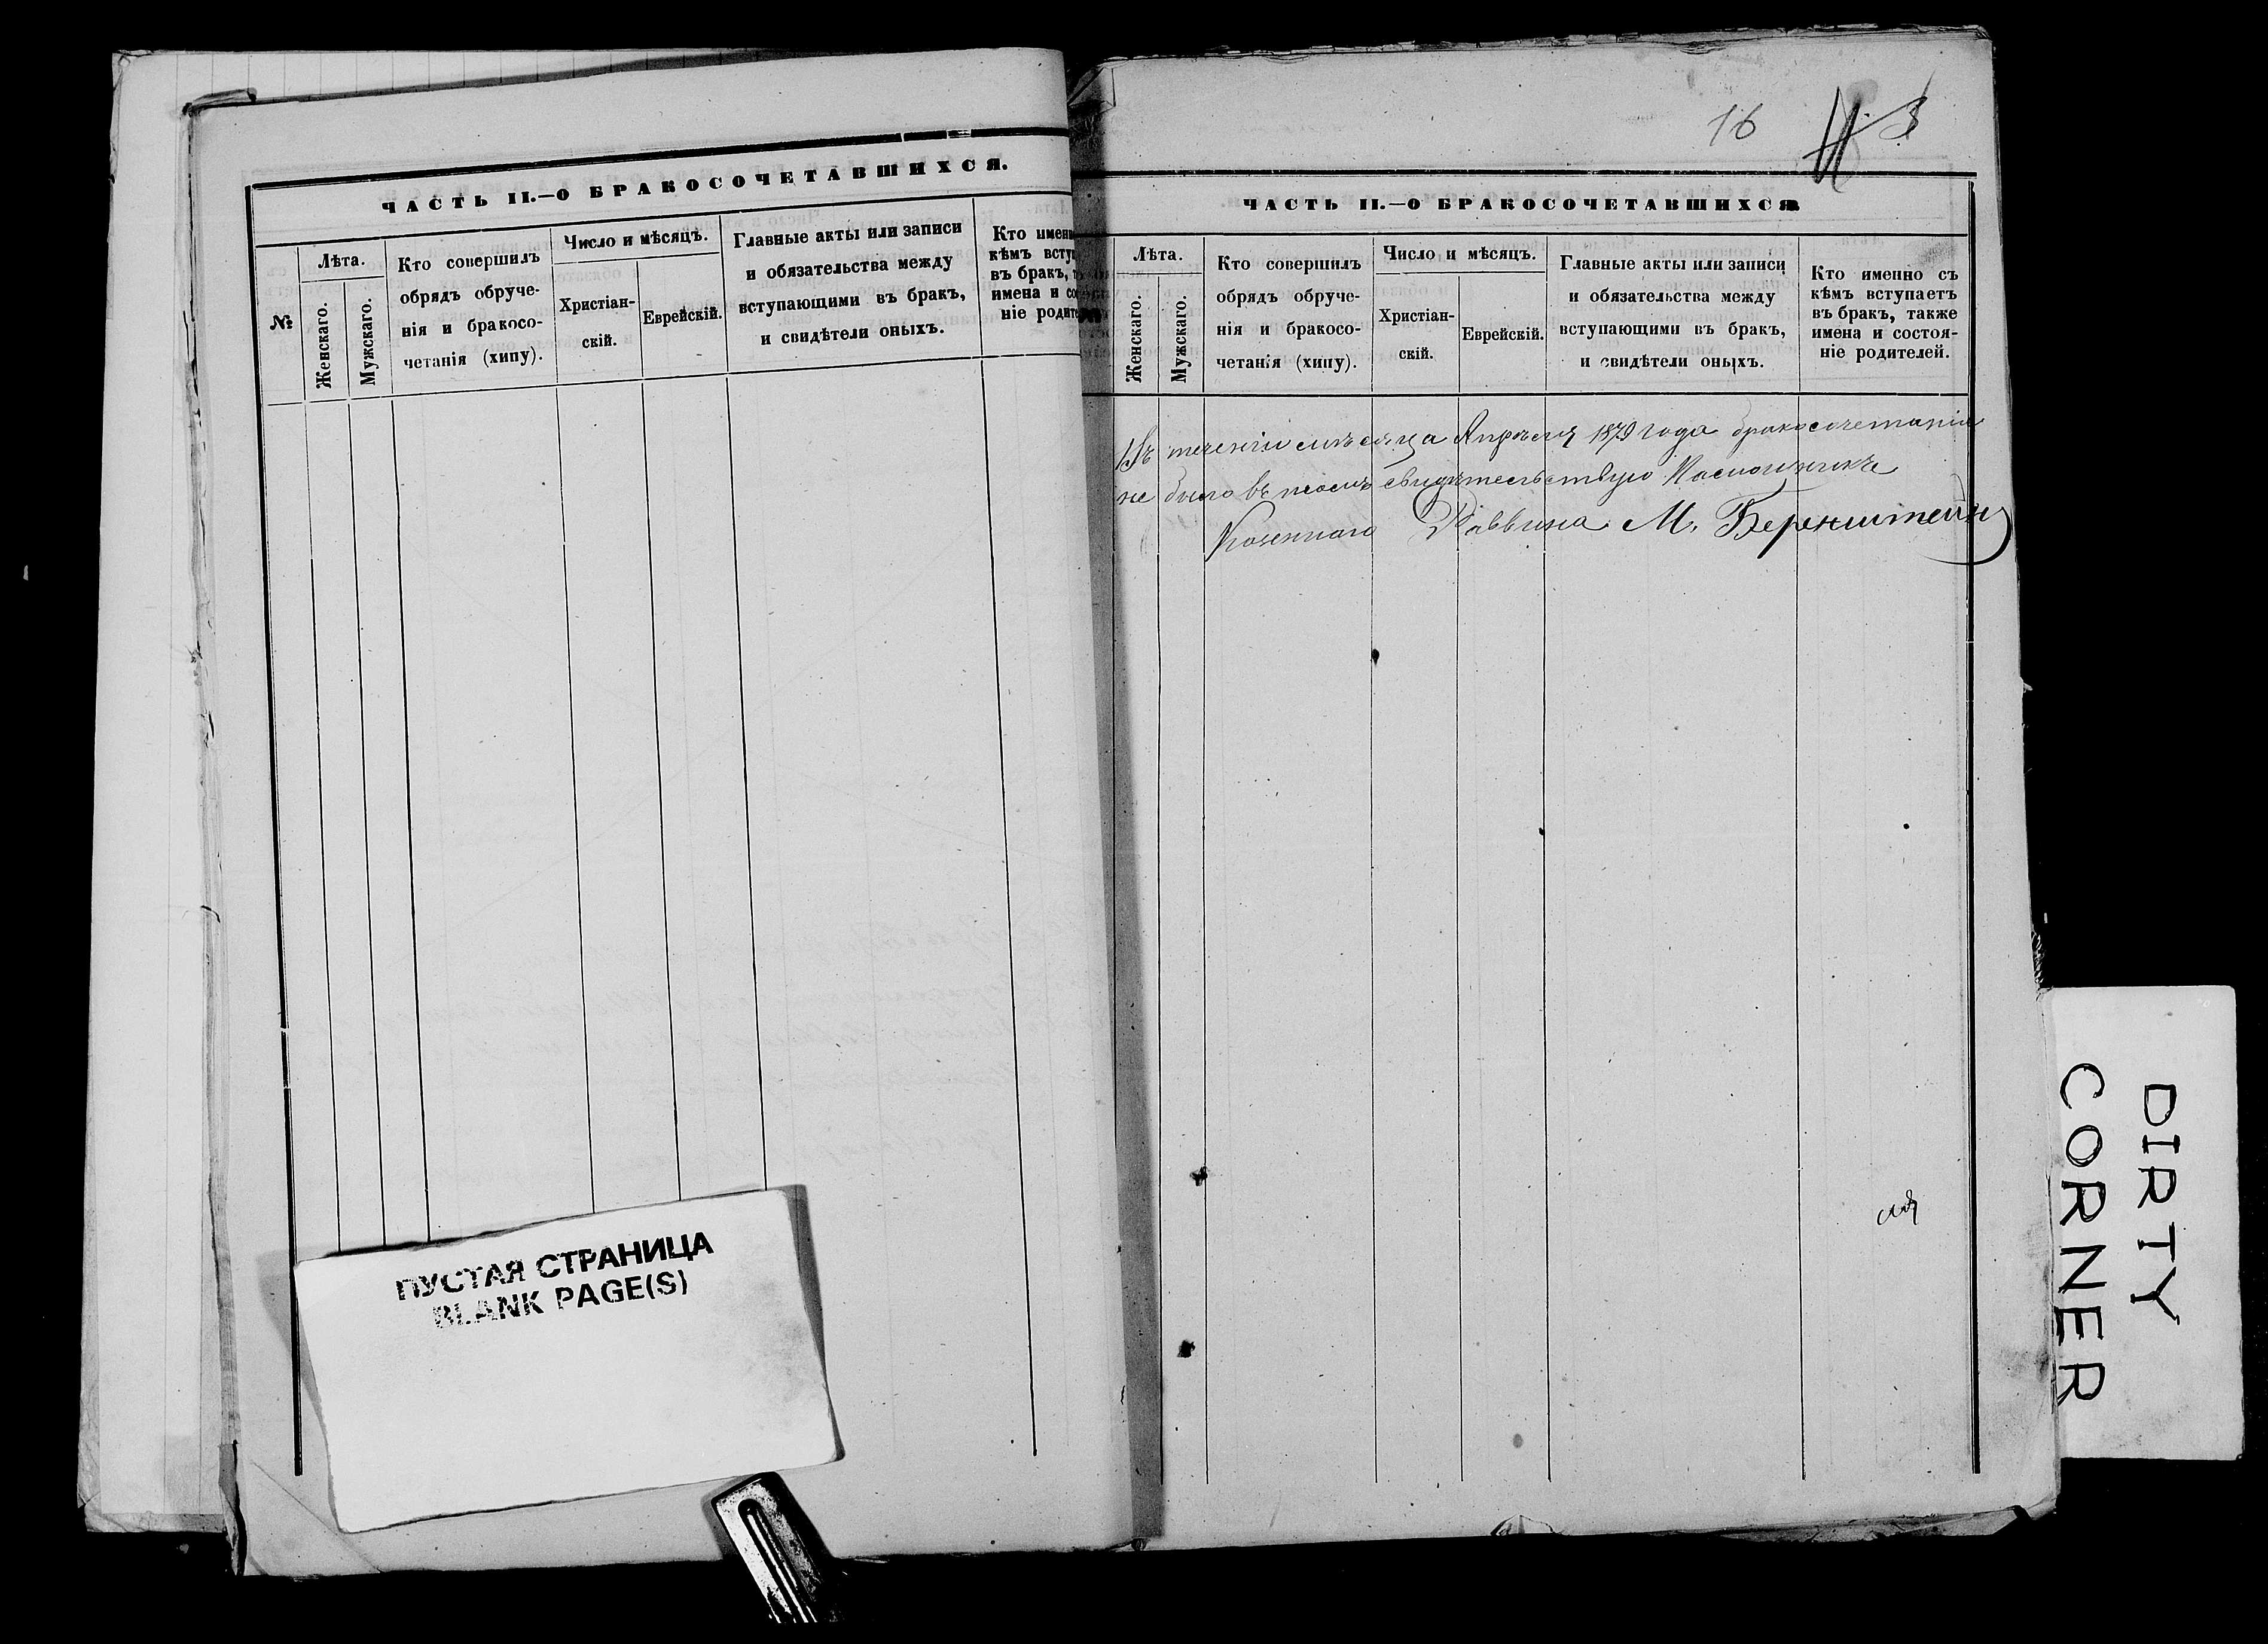 ЧАСТЬ II.—О БРАКОСОЧЕТАВШИХСЯ.
№
Лѣта.
Женскаго.
Мужскаго.
Кто совершилъ
обрядъ обруче-
нія и бракосо-
четанія (хипу).
Число и мѣсяцъ.
Христіан-
скій.
Еврейскій.
Главные акты или записи
и обязательства между
вступающими въ бракъ,
и свидѣтели оныхъ.
Кто имен
кѣмъ всту
въ бракъ,
имена и со
ніе родите
ПУСТАЯ СТРАНИЦА
BLANK PAGE(S)
16
ЧАСТЬ II.—О БРАКОСОЧЕТАВШИХСЯ
Лѣта.
Женскаго.
Мужскаго.
Кто совершилъ
обрядъ обруче-
нія и бракосо-
четанія (хипу).
Число и мѣсяцъ.
Христіан-
скій.
Еврейскій.
Главные акты или записи
и обязательства между
вступающими въ бракъ,
и свидѣтели оныхъ.
Кто именно съ
кѣмъ вступаетъ
въ бракъ, также
имена и состоя-
ніе родителей.
Въ теченіи мѣсяца Апрѣля 1879 года бракосочетанія
не было въ томъ свидѣтельствую Помощникъ
Казеннаго Раввина М. Беренштейнъ
DIRTY
CORNER